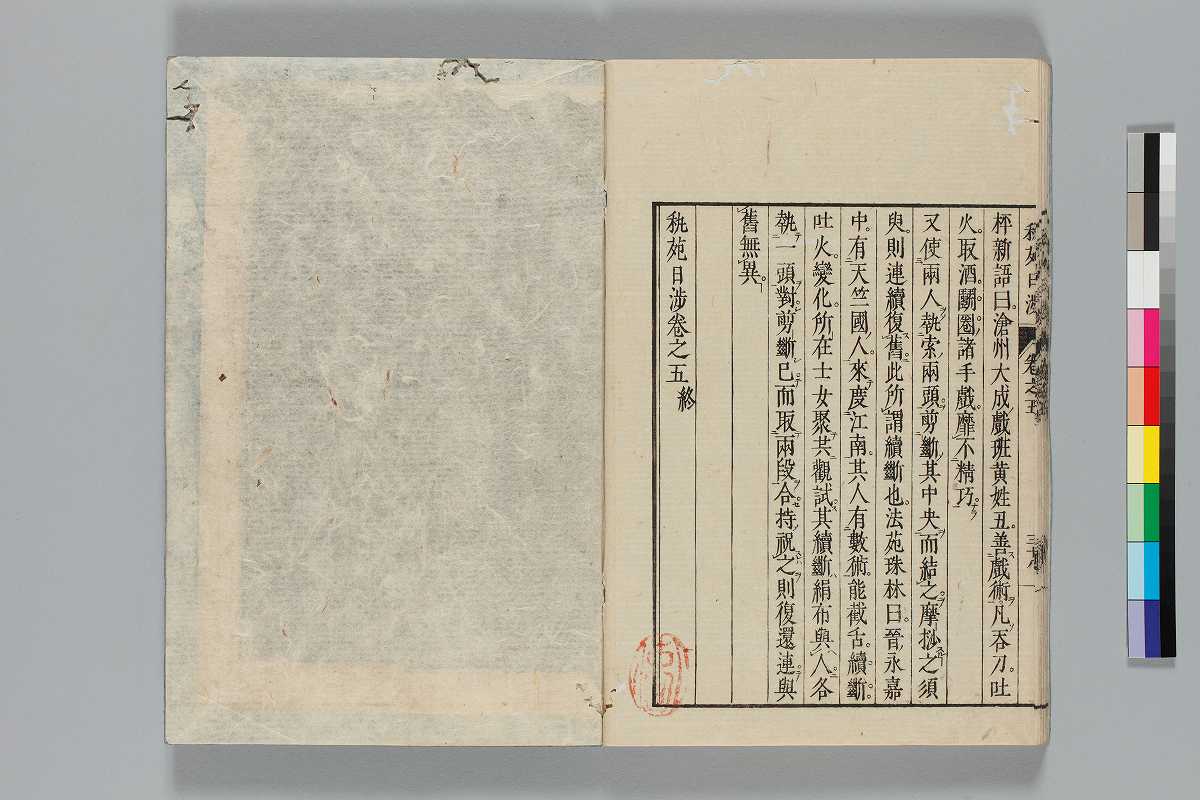 秇苑日渉 卷之五
枰新語曰滄州大成戲班黄姓丑善戲術凡吞刀吐
火取酒鬭圏諸手戲靡不精巧
又使兩人執索兩頭剪斷其中央而結之摩挱之須
臾則連續復舊此所謂續斷也法苑珠林曰晉永嘉
中有天竺國人來度江南其人有數術能截舌續斷
吐火變化所在士女聚共觀試其續斷絹布與人各
執一頭對剪斷已而取兩段合持祝之則復還連與
舊無異
秇苑日渉卷之五終